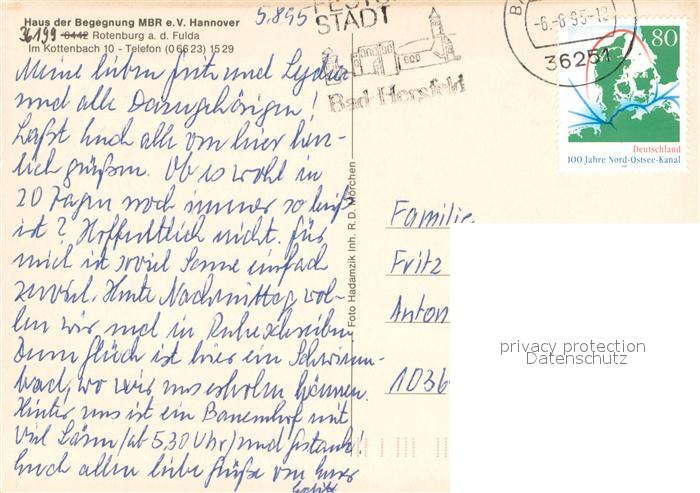 Haus der Begegnung MBR e.V. Hannover
36199 6442 Rotenburg a. d. Fulda
Im Kottenbach 10 - Telefon (0 66 23) 15 29
5.8.95
Meine lieben Fritz und Lydia
und alle Dazugehörigen!
Laßt Euch alle von hier herz-
lich grüßen. Ob es wohl in
20 Tagen noch immer so heiß
ist? Hoffentlich nicht. Für
mich ist soviel Sonne einfach
zuviel. Heute Nachmittag wol-
len wir mal in Ruhe schreiben.
Zum Glück ist hier ein Schwimm-
bad, wo wir uns erholen können.
Hinter uns ist ein Bauernhof mit
viel Lärm (ab 5,30 Uhr) und Gestank!
Euch allen liebe Grüße von Eurer
STADT
Bad Hersfeld
-6.-8.95-12
36251
80
Deutschland
100 Jahre Nord-Ostsee-Kanal
Foto Hadamzik Inh. R.D. Mörchen
Familie
Fritz
Anton
1036
privacy protection
Datenschutz